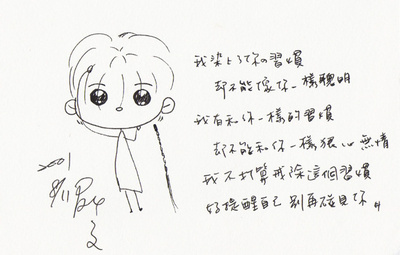 我染上了你の習慣
卻不能像你一樣聰明
我有和你一樣的習慣
卻不能和你一樣狠心無情
我不打算戒除這個習慣
好提醒自己 別再碰見你
2001
8/11